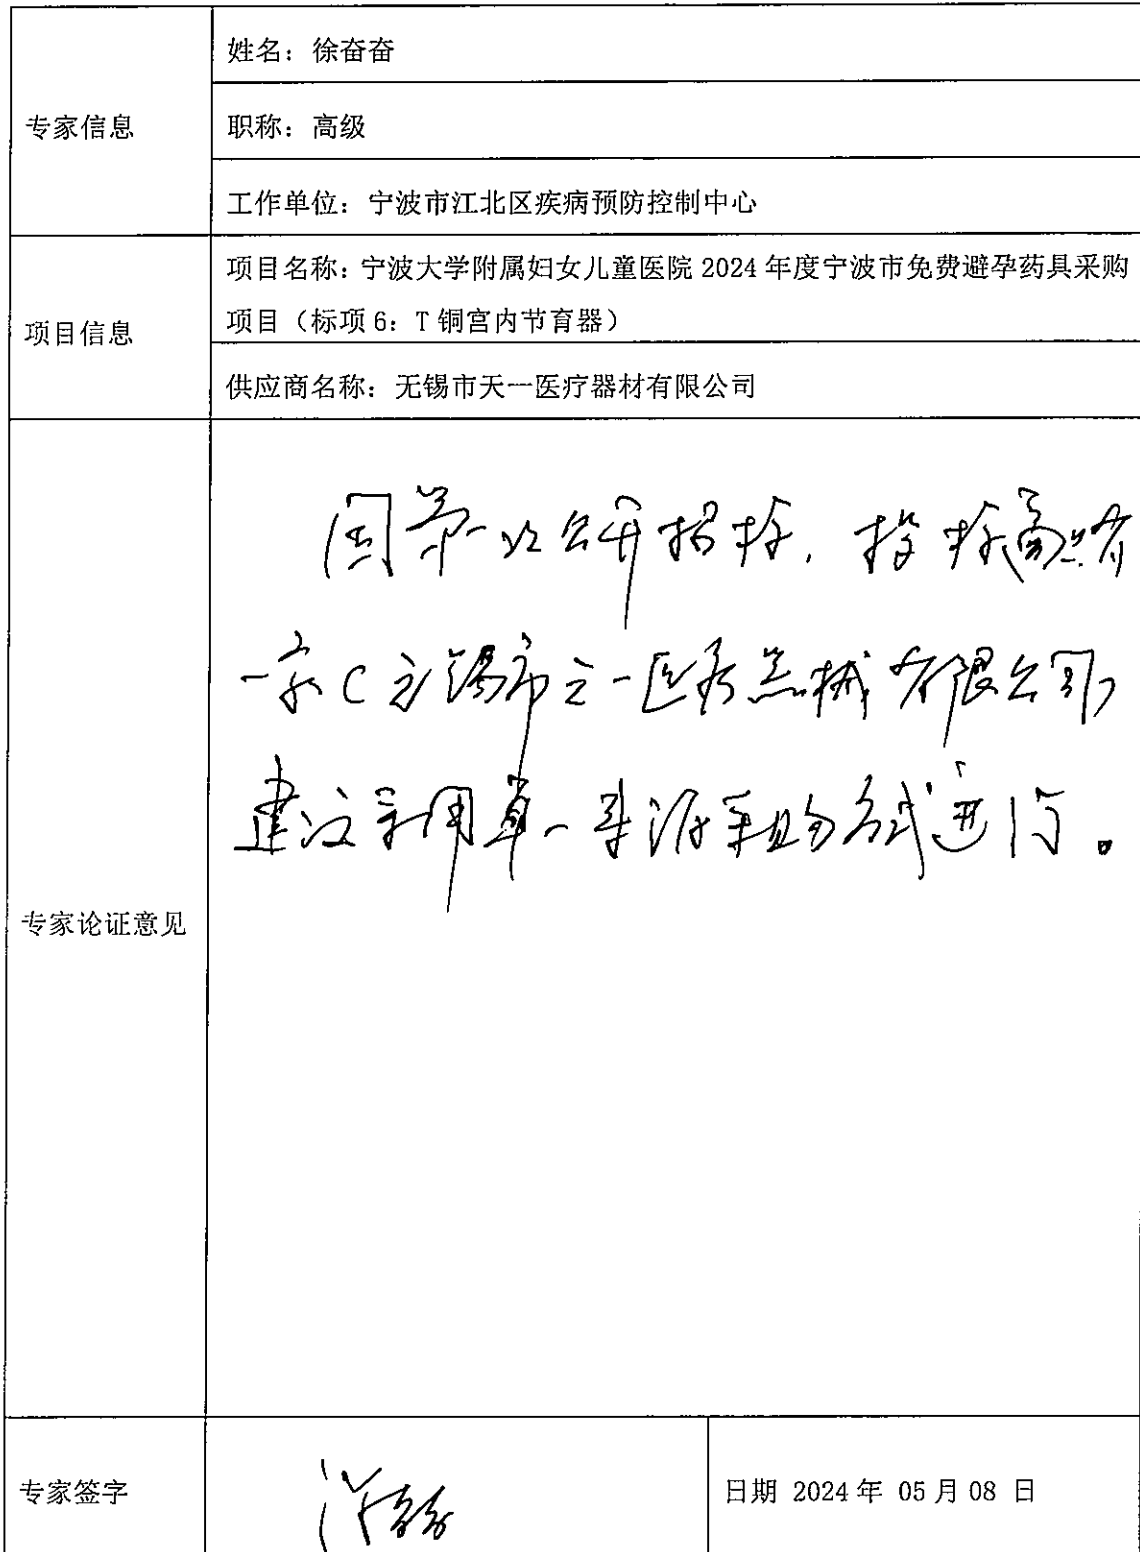 专家信息
姓名：徐奋奋
职称：高级
工作单位：宁波市江北区疾病预防控制中心
项目信息
项目名称：宁波大学附属妇女儿童医院 2024 年度宁波市免费避孕药具采购
项目（标项 6：T 铜宫内节育器）
供应商名称：无锡市天一医疗器材有限公司
专家论证意见
因第一次公开招标，投标商只有
一家（无锡市天一医疗器械有限公司）
建议采用单一来源采购方式进行。
专家签字
徐奋奋
日期 2024 年 05 月 08 日